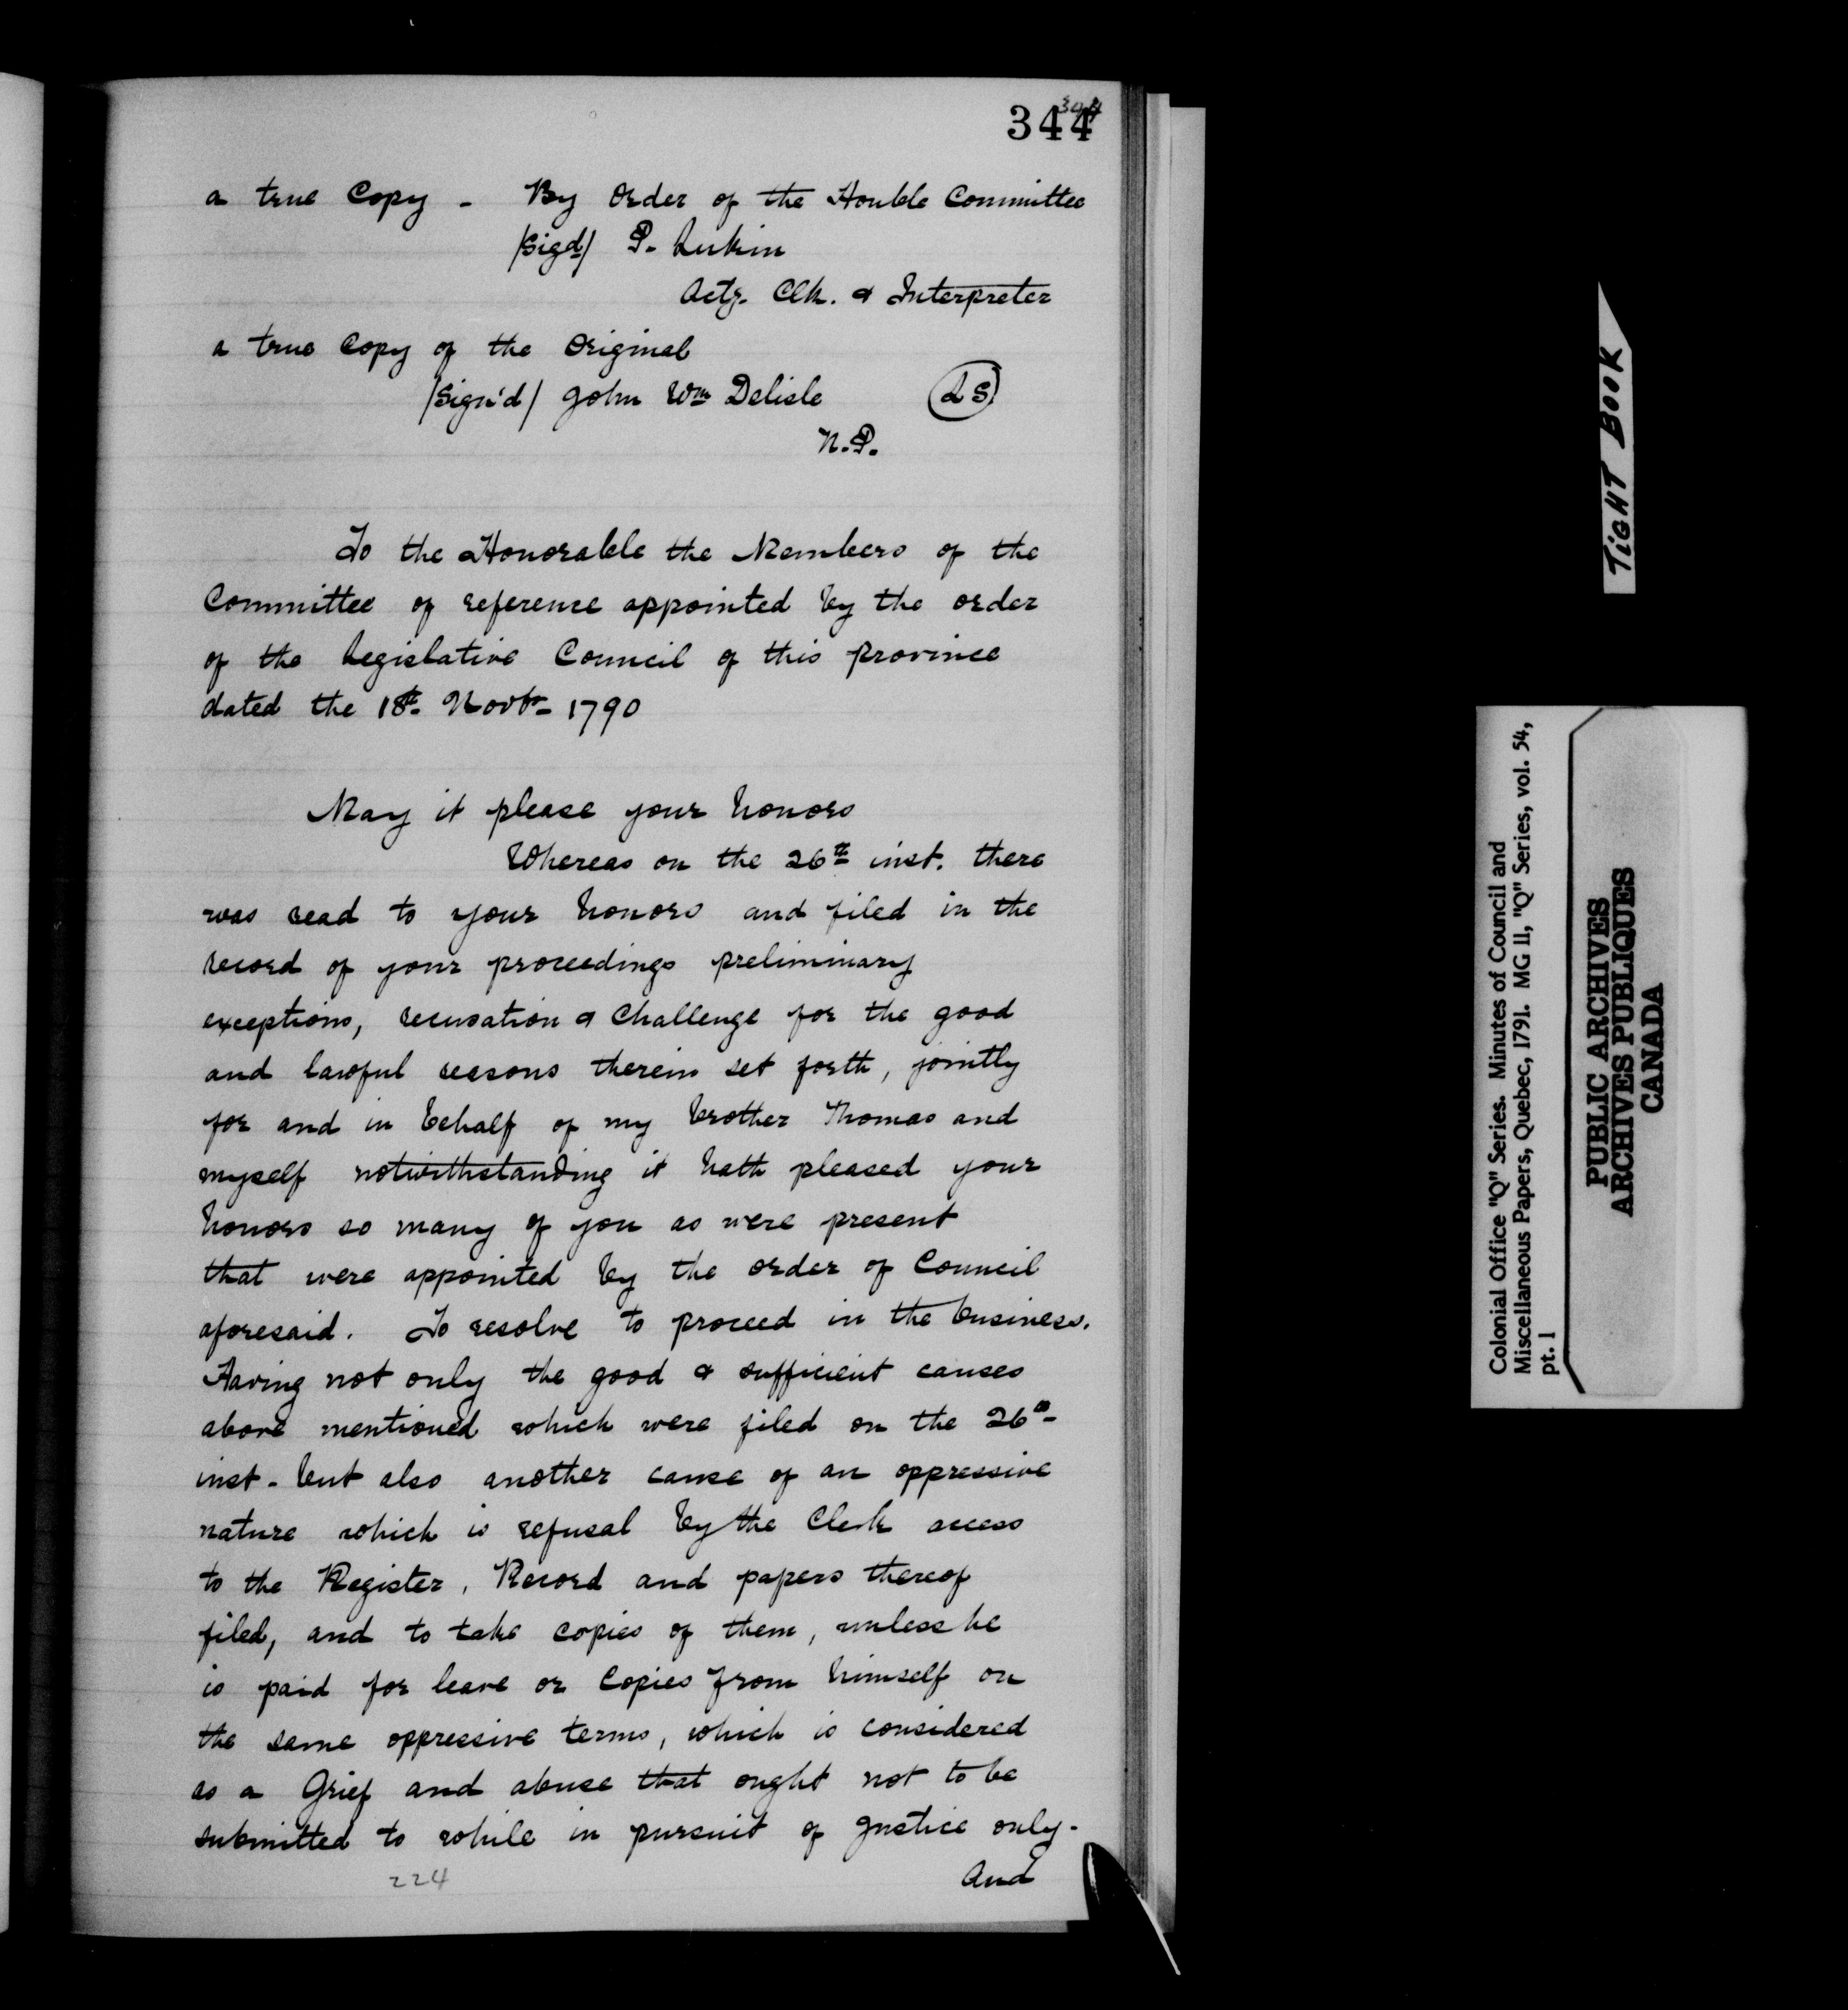 344
344
a true Copy - By Order of the Honble Committee
/Sigd/ P. Lukin
Actg. Clk. & Interpreter
a true Copy of the Original
/Sign'd/ John Wm Delisle
L S
N.P.
To the Honorable the Members of the
Committee of reference appointed by the order
of the Legislative Council of this province
dated the 1st Novbr 1790
May it please your honors
Whereas on the 26th inst. there
was read to your honors and filed in the
record of your proceedings preliminary
exceptions, recusation & Challenge for the good
and lawful reasons therein set forth, jointly
for and in behalf of my brother Thomas and
myself notwithstanding it hath pleased your
honors so many of you as were present
that were appointed by the order of Council
aforesaid. To resolve to proceed in the business.
Having not only the good & sufficient causes
above mentioned which were filed on the 26th
inst - but also another cause of an oppressive
nature which is refusal by the Clerk access
to the Register, Record and papers thereof
filed, and to take copies of them, unless he
is paid for leave or Copies from himself on
the same oppressive terms, which is considered
as a Grief and abuse that ought not to be
submitted to while in pursuit of Justice only.
And
224
TIGHT BOOK
Colonial Office "Q" Series. Minutes of Council and
Miscellaneous Papers, Quebec, 1791. MG 11, "Q" Series, vol. 54,
pt. 1
PUBLIC ARCHIVES
ARCHIVES PUBLIQUES
CANADA